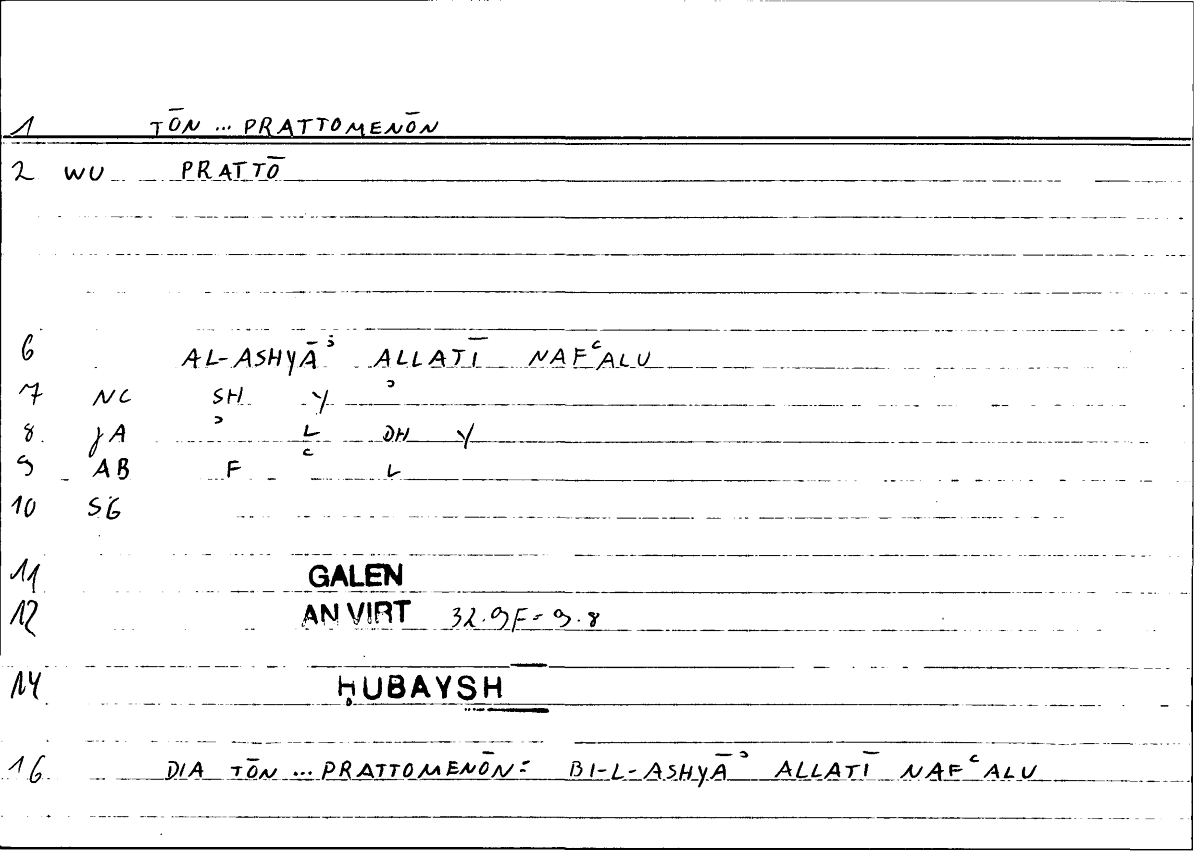 1 TŌN ... PRATTOMENŌN
2 WU PRATTŌ
6 AL-ASHYĀʾ ALLATĪ NAFʿALU
7 NC SH Y ʾ
8. JA ʾ L DH Y
9 AB F ʿ L
10 SG
11 GALEN
12 AN VIRT 32.9F=9.8
14 ḤUBAYSH
16 DIA TŌN ... PRATTOMENŌN: BI-L-ASHYĀʾ ALLATĪ NAFʿALU